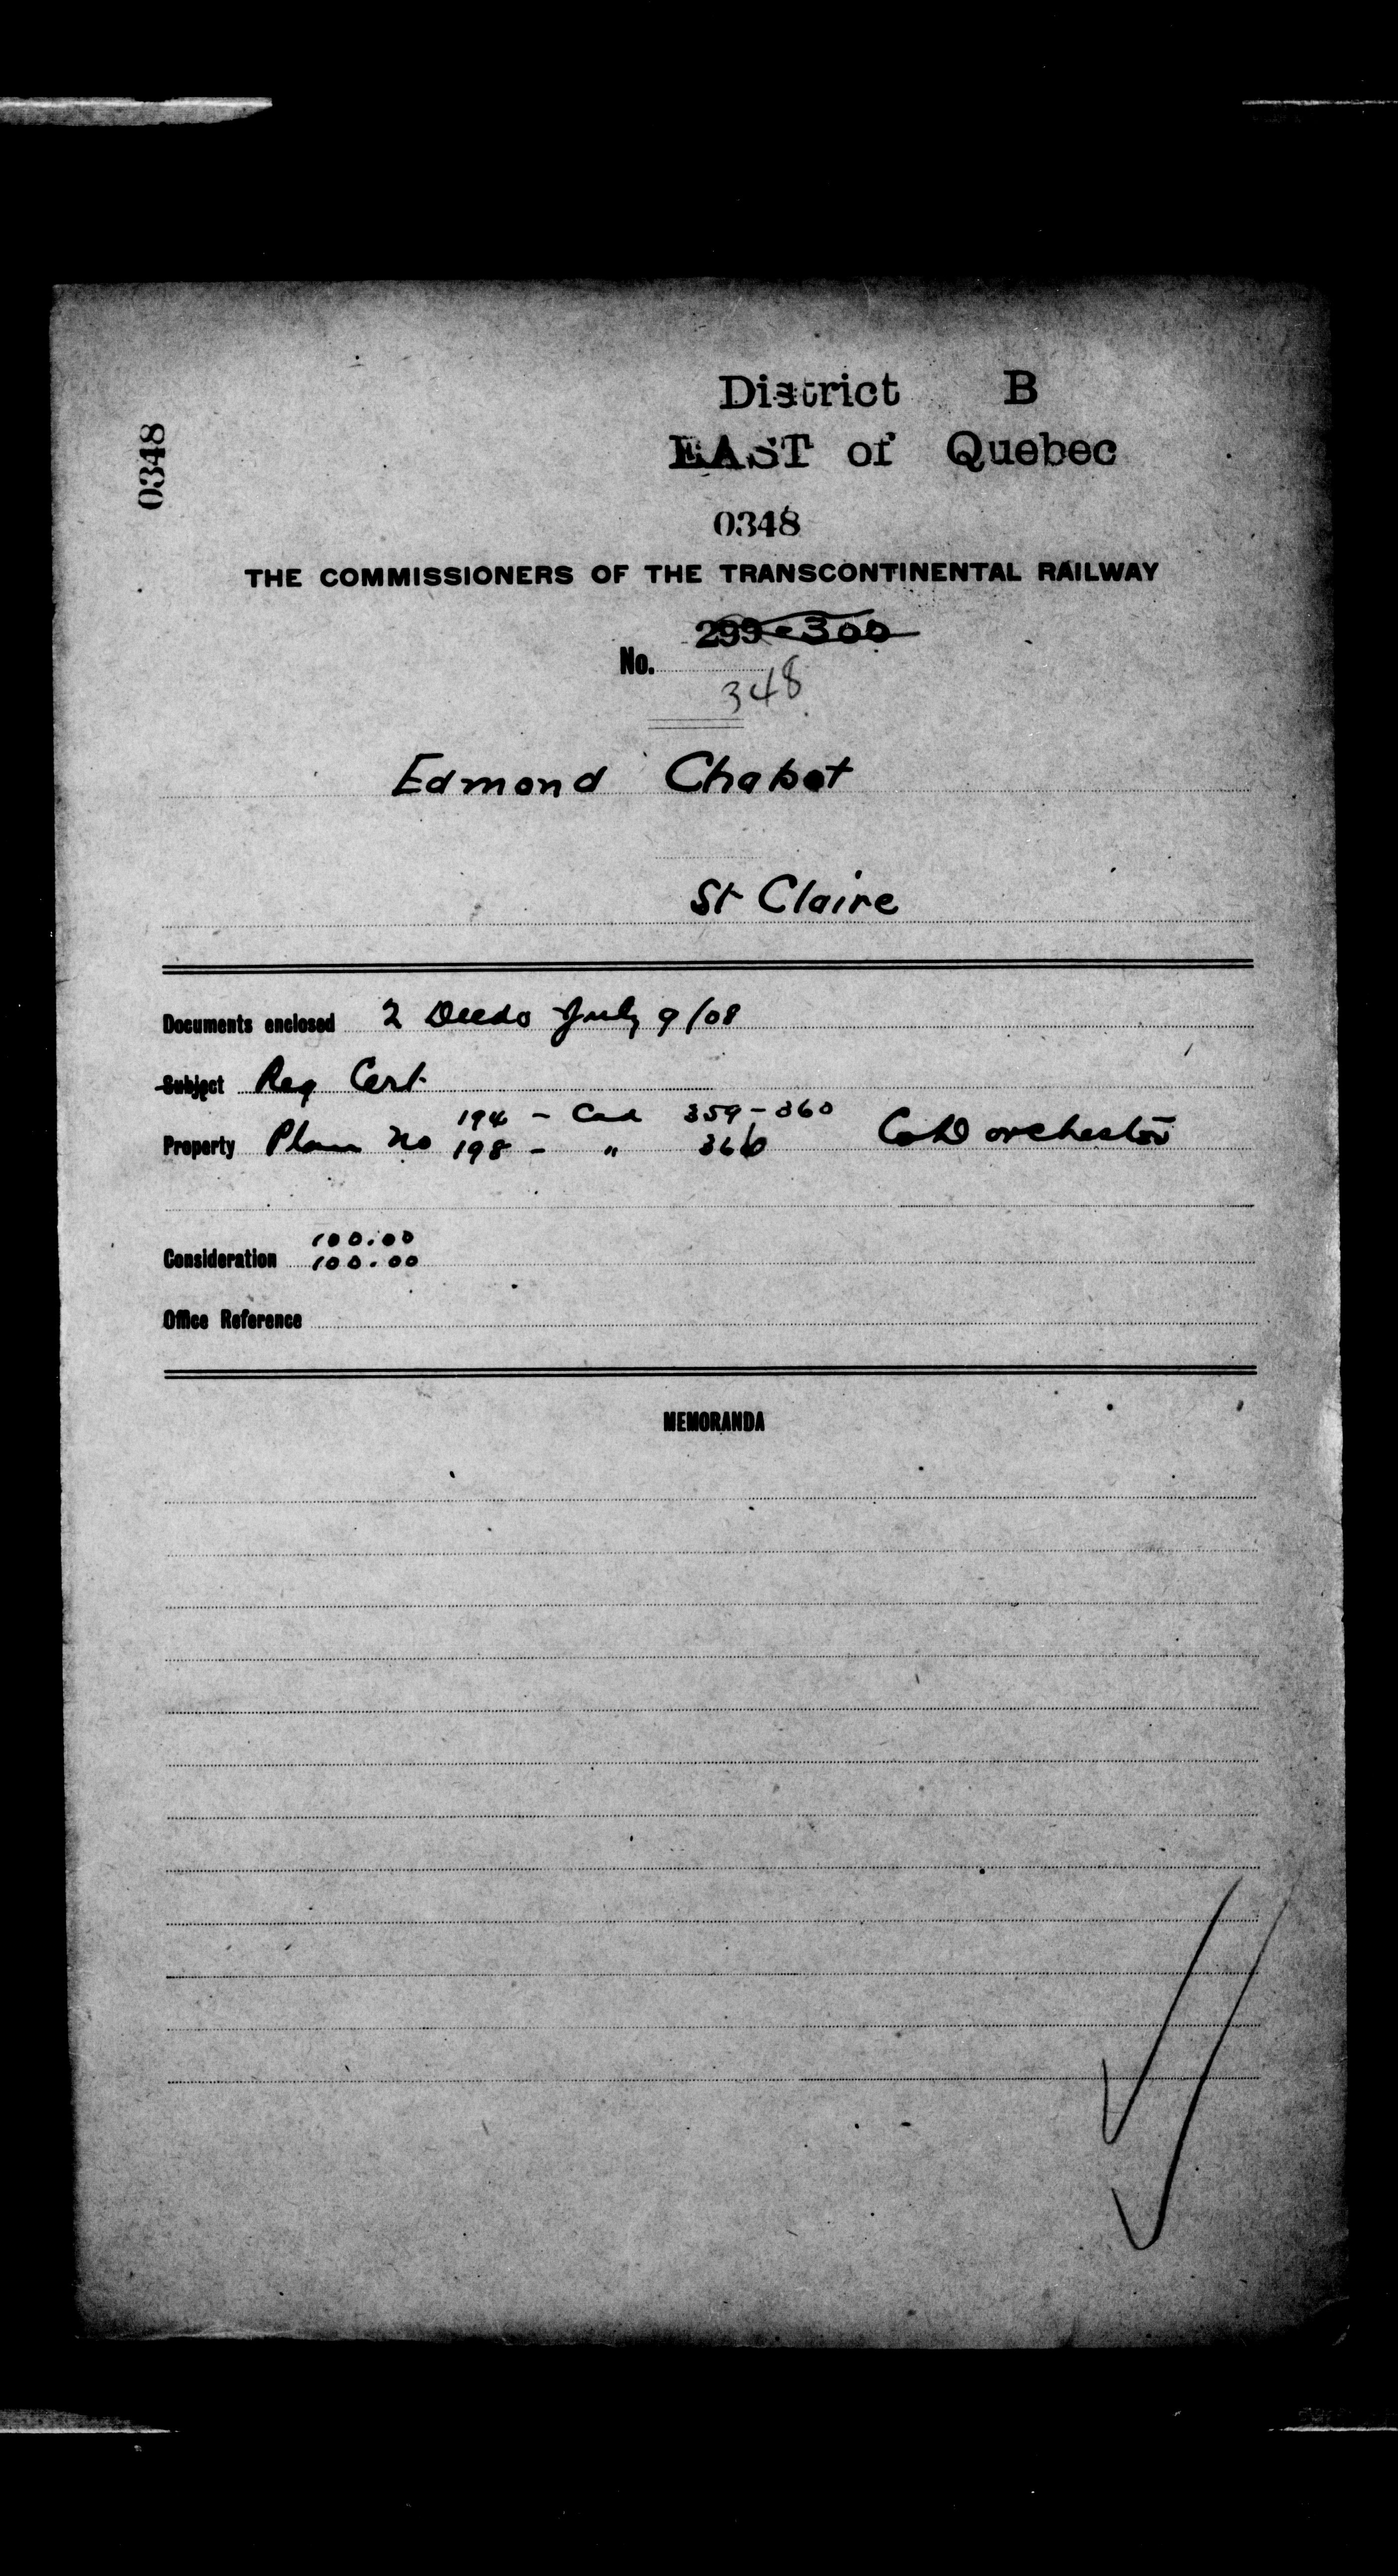 District B
EAST of Quebec
0348
0348
THE COMMISSIONERS OF THE TRANSCONTINENTAL RAILWAY
299-300
No.
348
Edmond Chabot
St Claire
Documents enclosed 2 Deeds July 9/08
Subject Reg Cert.
194 - Cad 359-360
Property Plan No 198 - " 366 Co Dorchester
100.00
Consideration 100.00
Office Reference
MEMORANDA